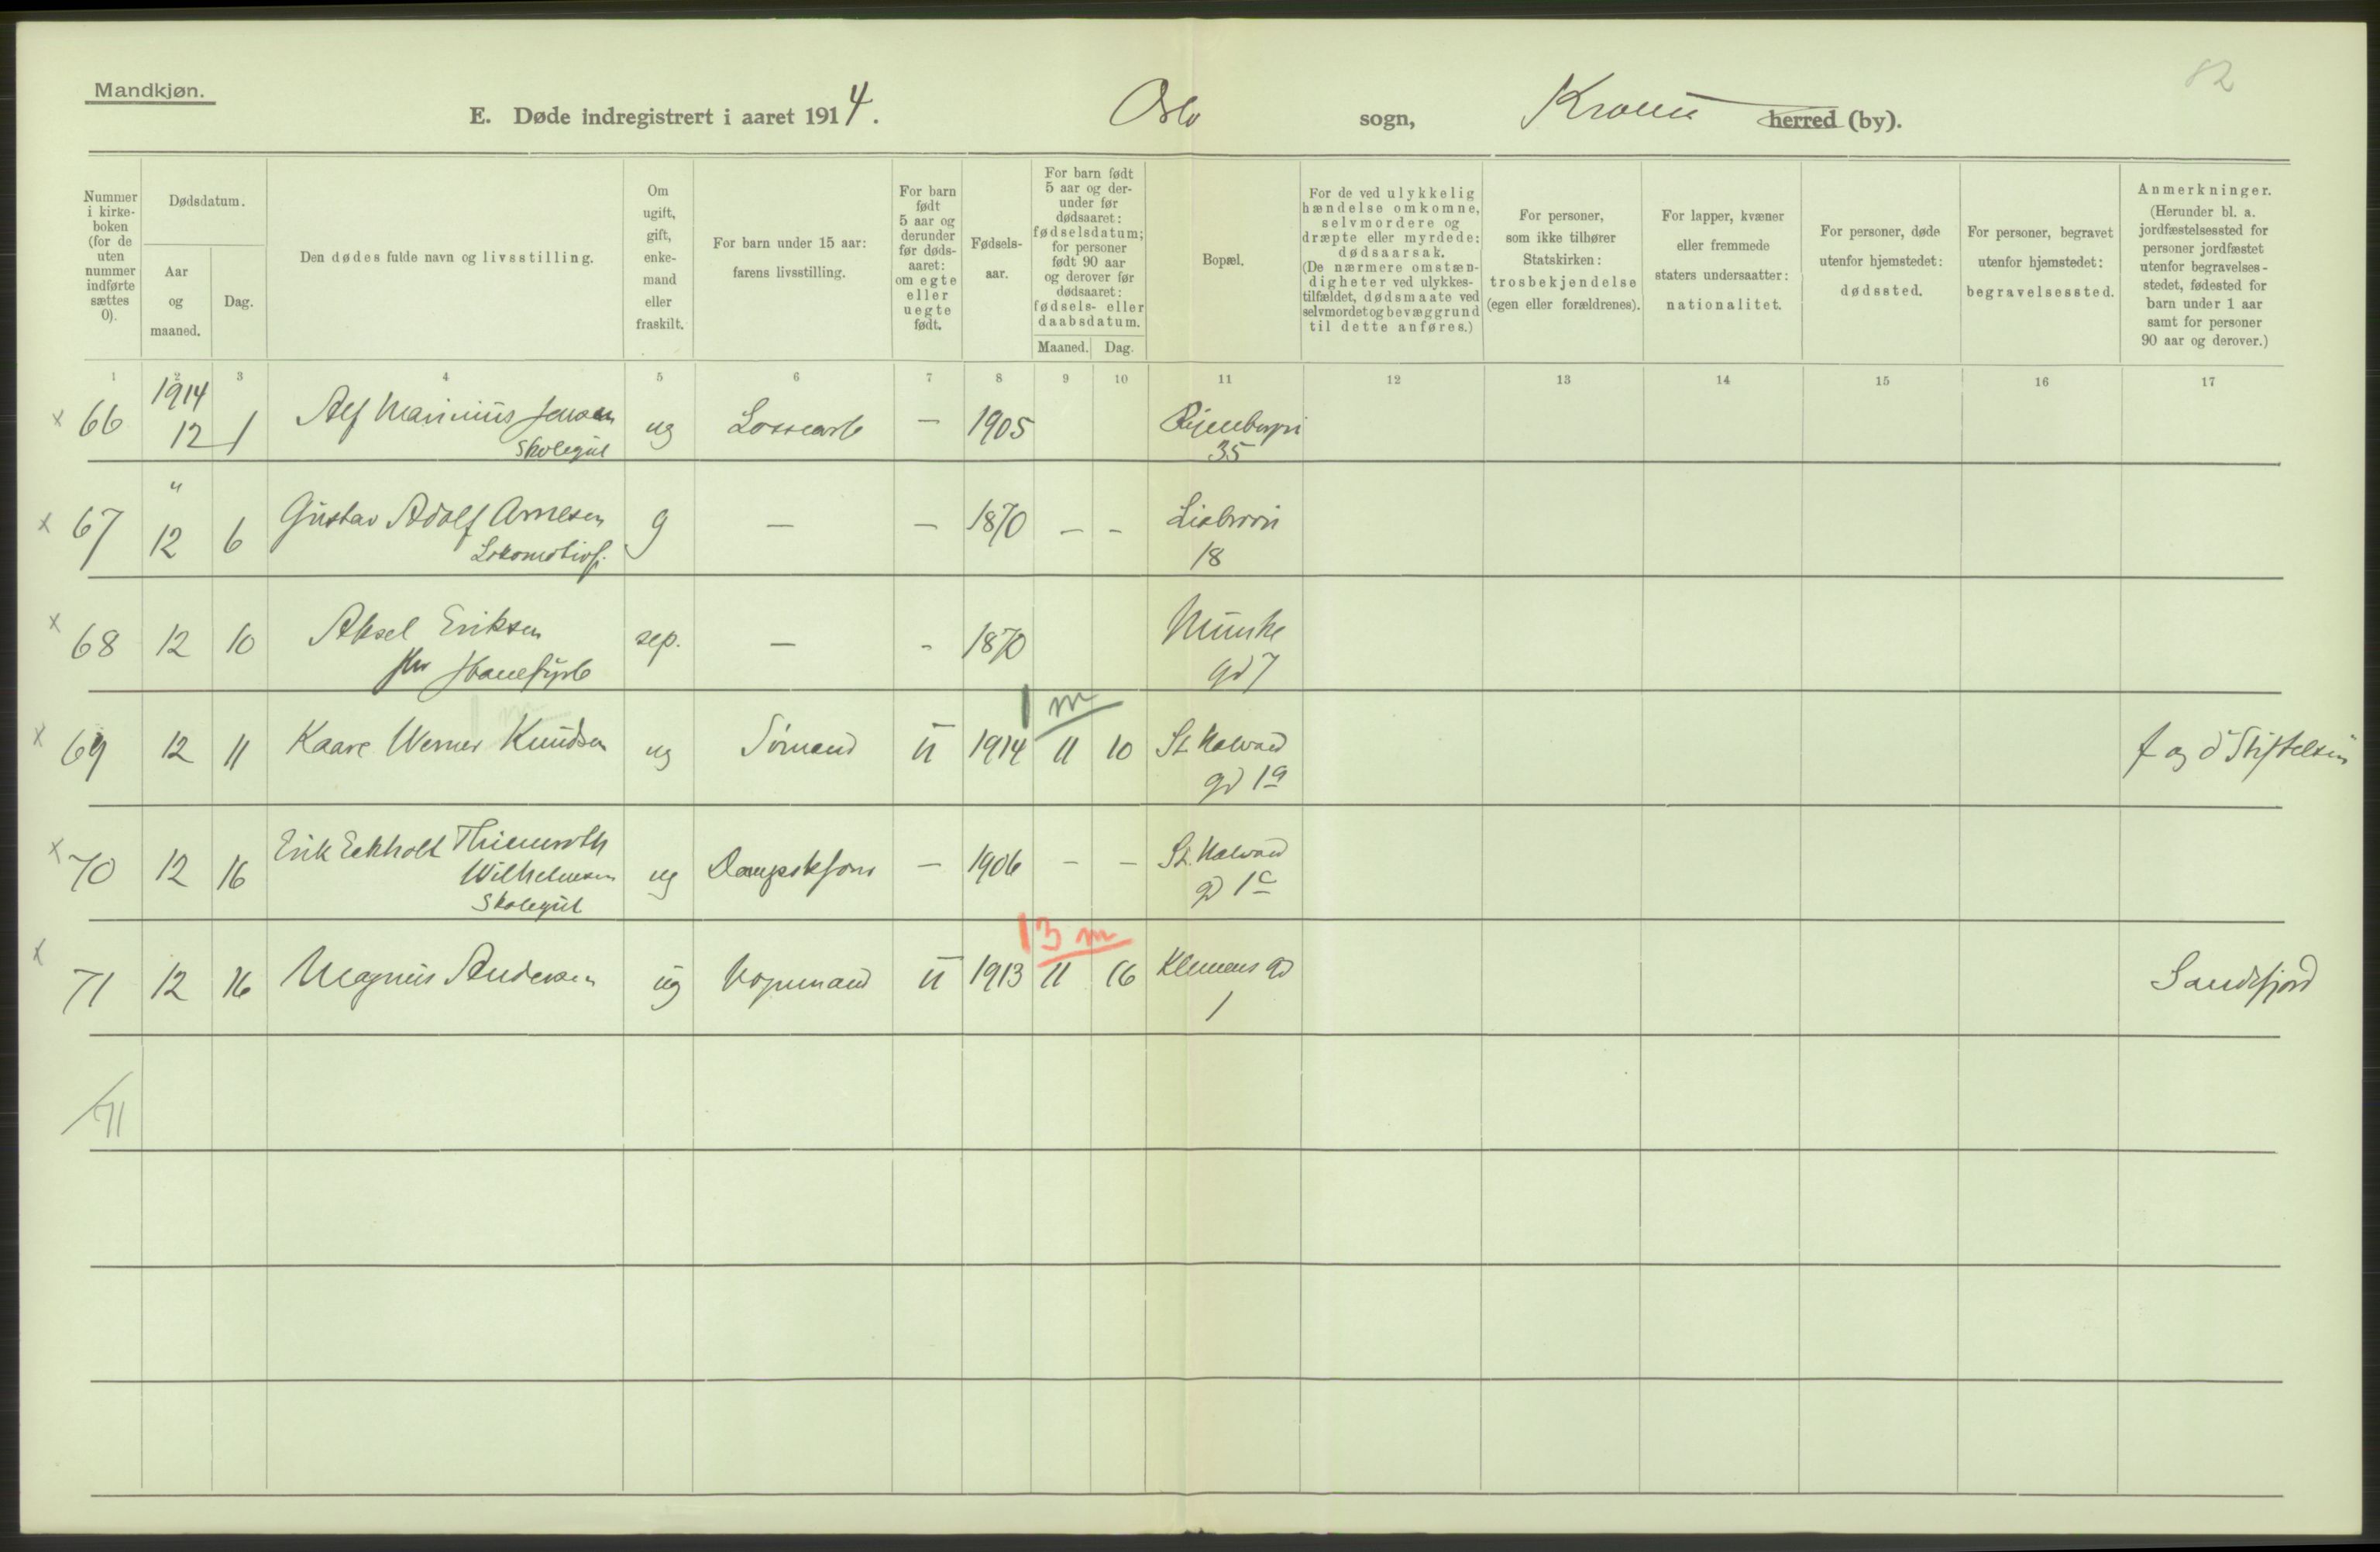 82
Mandkjøn.
E. Døde indregistrert i aaret 1914. Oslo sogn, herred (by).
Nummer i kirkeboken (for de uten nummer indførte sættes 0).
Dødsdatum.
Aar og maaned.
Dag.
Den dødes fulde navn og livsstilling.
Om ugift, gift, enkemand eller fraskilt.
For barn under 15 aar: farens livsstilling.
For barn født 5 aar og derunder før dødsaaret: om egte eller uegte født.
Fødselsaar.
For barn født 5 aar og derunder før dødsaaret: fødselsdatum; for personer født 90 aar og derover før dødsaaret: fødsels- eller daabsdatum.
Maaned. Dag.
Bopæl.
For de ved ulykkelig hændelse omkomne, selvmordere og dræpte eller myrdede: dødsaarsak. (De nærmere omstændigheter ved ulykkestilfældet, dødsmaate ved selvmordet og bevæggrund til dette anføres.)
For personer, som ikke tilhører Statskirken: trosbekjendelse (egen eller forældrenes).
For lapper, kvæner eller fremmede staters undersaatter: nationalitet.
For personer, døde utenfor hjemstedet: dødssted.
For personer, begravet utenfor hjemstedet: begravelsessted.
Anmerkninger. (Herunder bl. a. jordfæstelsessted for personer jordfæstet utenfor begravelsesstedet, fødested for barn under 1 aar samt for personer 90 aar og derover.)
1 2 3 4 5 6 7 8 9 10 11 12 13 14 15 16 17
1914
x 66 12 1 Alf Marinius Jensen ug — 1905
Skolegut 35
"
x 67 12 6 Gustav Adolf Arnesen g — — 1870 — — Liabrovi
Lokomotivf. 18
x 68 12 10 Aksel Eriksen sep. — - 1870 Munke
gd 7
1 m
x 69 12 11 Kaare Werner Knudsen ug Sømand u 1914 11 10 St. Halvard f og d Stiftelsen
gd 1a
x 70 12 16 Erik Eckholt Thiemroth ug — 1906 — — St. Halvard
Wilhelmsen gd 1c
Skolegut
13 m
x 71 12 16 Magnus Andersen ug Vognmand u 1913 11 16 Klemens gd Sandefjord
1
71